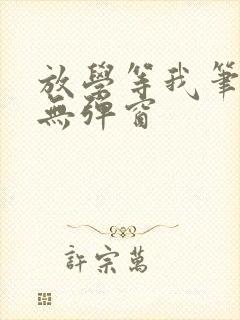 放學等我筆
無彈窗
許宗萬